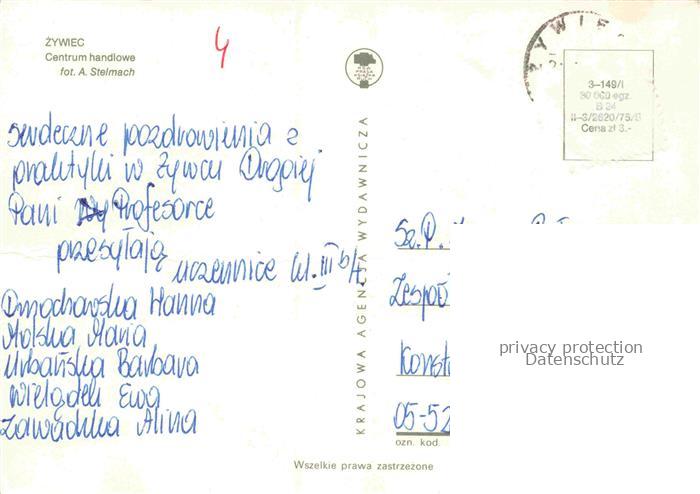 ŻYWIEC
Centrum handlowe
fot. A. Stelmach
4
ŻYWIEC
3-149/I
30 000 egz.
B 24
II-3/2620/75/B
Cena zł 3.-
KRAJOWA AGENCJA WYDAWNICZA
serdeczne pozdrowienia z
praktyki w Żywcu Drogiej
Pani Profesorce
przesyłają
uczennice kl. III b/4
Dmochowska Hanna
Molska Maria
Urbańska Barbara
Wielądek Ewa
Zawadzka Alina
Sz.P.
Zespó
Konst
05-52
ozn. kod.
privacy protection
Datenschutz
Wszelkie prawa zastrzeżone